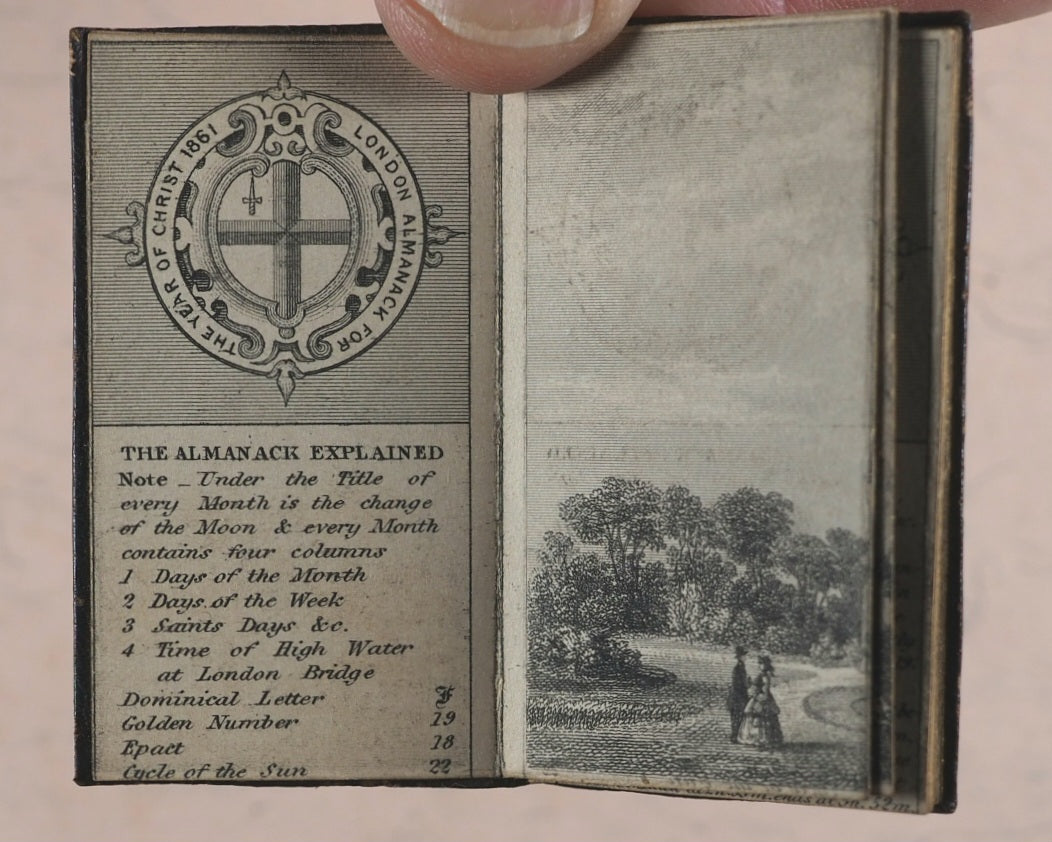 LONDON ALMANACK FOR THE YEAR OF CHRIST 1861
THE ALMANACK EXPLAINED
Note _ Under the Title of
every Month is the change
of the Moon & every Month
contains four columns
1 Days of the Month
2 Days of the Week
3 Saints Days &c.
4 Time of High Water
at London Bridge
Dominical Letter F
Golden Number 19
Epact 18
Cycle of the Sun 22
ends at